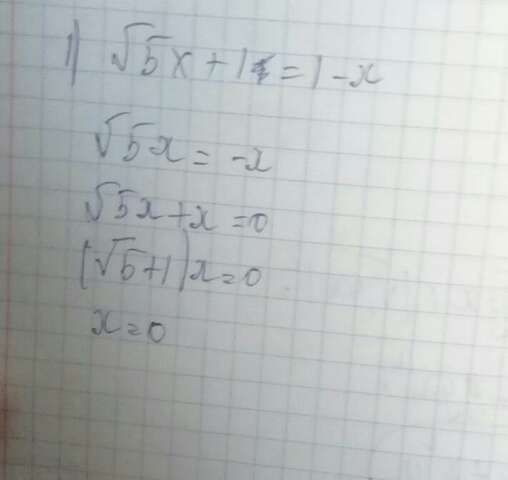 1) √5x + 1 = 1 - x
√5x = -x
√5x + x = 0
(√5+1)x = 0
x = 0